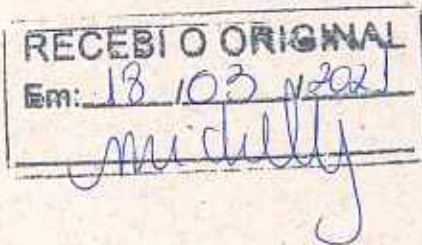 RECEBI O ORIGINAL
Em: 18 / 03 / 2021
Michelly